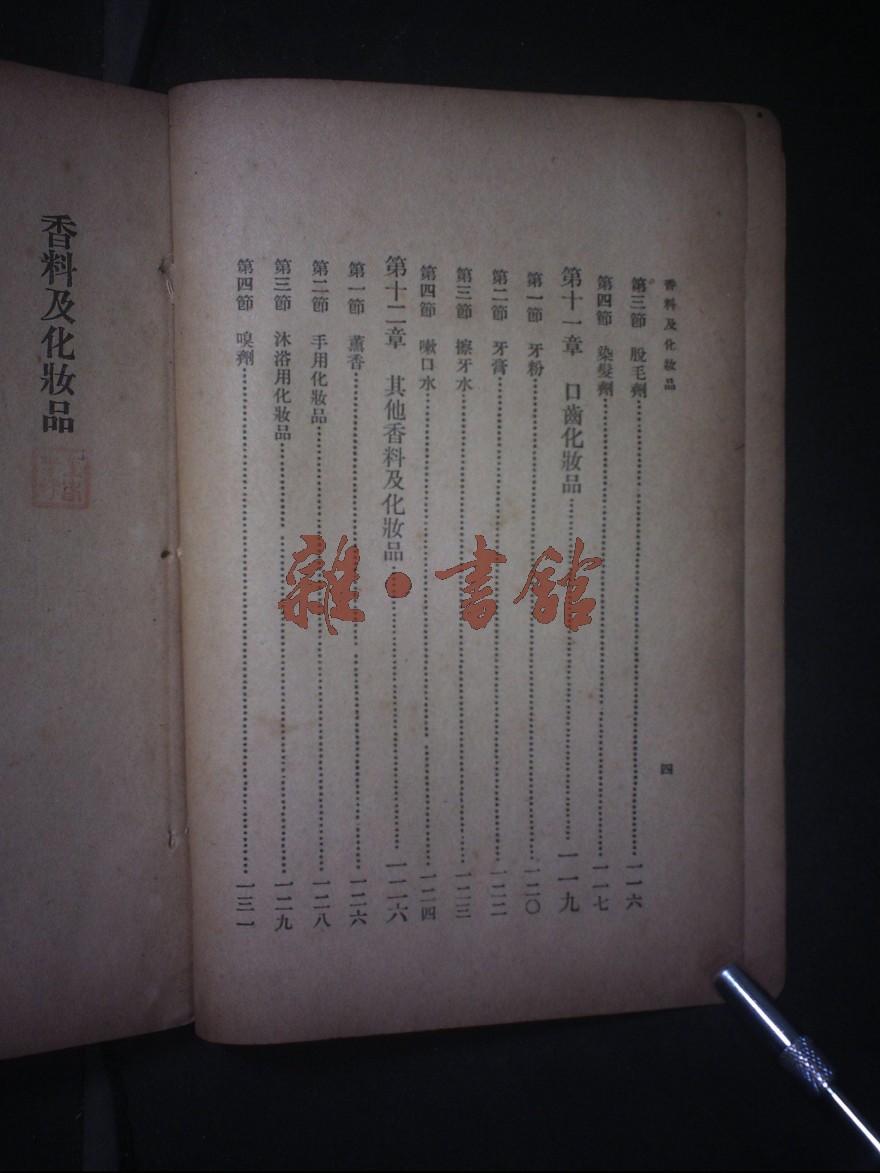 香料及化妝品
四
第三節 脫毛劑 一一六
第四節 染髮劑 一一七
第十一章 口齒化妝品 一一九
第一節 牙粉 一二〇
第二節 牙膏 一二二
第三節 擦牙水 一二三
第四節 嗽口水 一二四
第十二章 其他香料及化妝品 一二六
第一節 薰香 一二六
第二節 手用化妝品 一二八
第三節 沐浴用化妝品 一二九
第四節 嗅劑 一三一
香料及化妝品
雜·書館